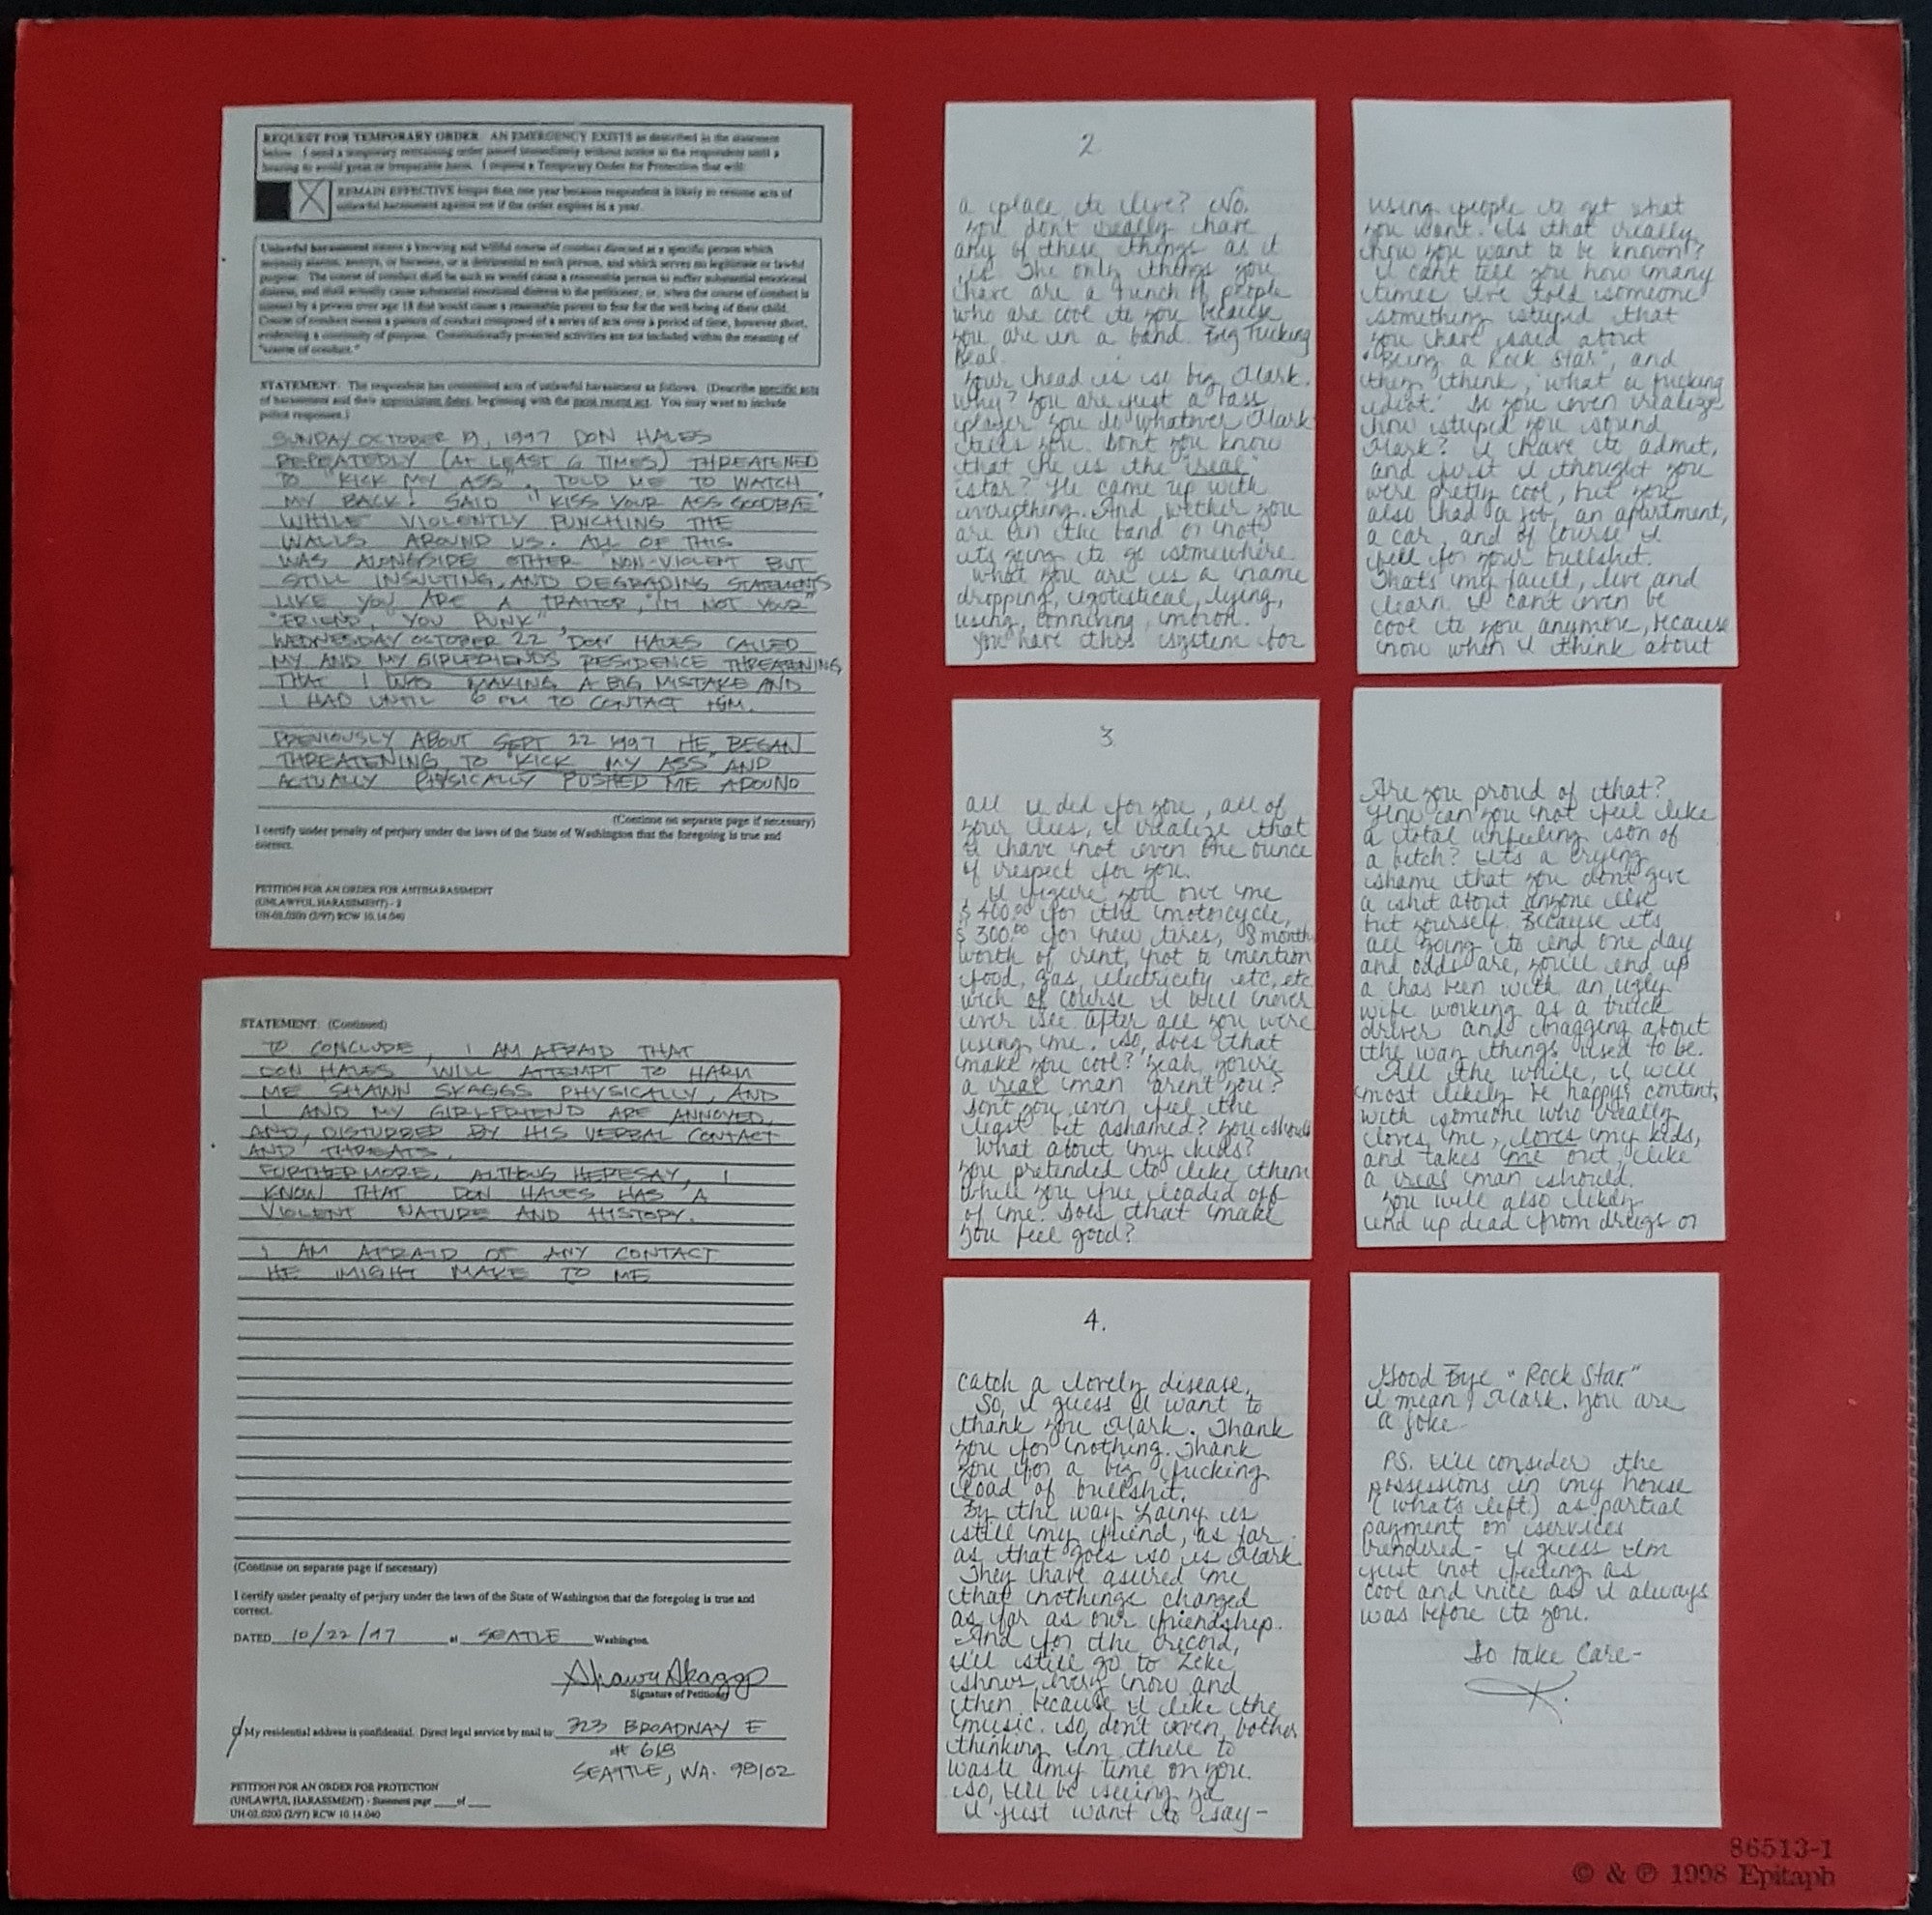 REQUEST FOR TEMPORARY ORDER: AN EMERGENCY EXISTS as described in the statement
below. I need a temporary restraining order issued immediately without notice to the respondent until a
hearing to avoid great or irreparable harm. I request a Temporary Order for Protection that will:
REMAIN EFFECTIVE longer than one year because respondent is likely to resume acts of
unlawful harassment against me if the order expires in a year.
Unlawful harassment means a knowing and willful course of conduct directed at a specific person which
seriously alarms, annoys, or harasses, or is detrimental to such person, and which serves no legitimate or lawful
purpose. The course of conduct shall be such as would cause a reasonable person to suffer substantial emotional
distress, and shall actually cause substantial emotional distress to the petitioner; or, when the course of conduct is
contact by a person over age 18 that would cause a reasonable parent to fear for the well-being of their child.
Course of conduct means a pattern of conduct composed of a series of acts over a period of time, however short,
evidencing a continuity of purpose. Constitutionally protected activities are not included within the meaning of
"course of conduct."
STATEMENT: The respondent has committed acts of unlawful harassment as follows. (Describe specific acts
of harassment and their approximate dates, beginning with the most recent act. You may want to include
police responses.)
SUNDAY OCTOBER 19, 1997 DON HALES
REPEATEDLY (AT LEAST 6 TIMES) THREATENED
TO "KICK MY ASS", TOLD ME TO WATCH
MY BACK! SAID "KISS YOUR ASS GOODBYE"
WHILE VIOLENTLY PUNCHING THE
WALLS AROUND US. ALL OF THIS
WAS ALONGSIDE OTHER NON-VIOLENT BUT
STILL INSULTING, AND DEGRADING STATEMENTS
LIKE YOU ARE A TRAITOR, "I'M NOT YOUR"
"FRIEND", "YOU PUNK",
WEDNESDAY OCTOBER 22 DON HALES CALLED
MY AND MY GIRLFRIENDS RESIDENCE THREATENING
THAT I WAS MAKING A BIG MISTAKE AND
I HAD UNTIL 6 PM TO CONTACT HIM.
PREVIOUSLY ABOUT SEPT 22 1997 HE BEGAN
THREATENING TO "KICK MY ASS" AND
ACTUALLY PHYSICALLY PUSHED ME AROUND
(Continue on separate page if necessary)
I certify under penalty of perjury under the laws of the State of Washington that the foregoing is true and
correct.
PETITION FOR AN ORDER FOR ANTIHARASSMENT
(UNLAWFUL HARASSMENT) - 2
UH-02.0200 (2/97) RCW 10.14.040
STATEMENT: (Continued)
TO CONCLUDE, I AM AFRAID THAT
DON HALES WILL ATTEMPT TO HARM
ME SHAWN SKAGGS PHYSICALLY, AND
I AND MY GIRLFRIEND ARE ANNOYED,
AND, DISTURBED BY HIS VERBAL CONTACT
AND THREATS.
FURTHERMORE, ALTHOUG HERESAY, I
KNOW THAT DON HALES HAS A
VIOLENT NATURE AND HISTORY.
I AM AFRAID OF ANY CONTACT
HE MIGHT MAKE TO ME
(Continue on separate page if necessary)
I certify under penalty of perjury under the laws of the State of Washington that the foregoing is true and
correct.
DATED 10/22/97 at SEATLE Washington.
Shawn Skaggs
Signature of Petitioner
My residential address is confidential. Direct legal service by mail to: 323 BROADWAY E
# 618
SEATTLE, WA. 98102
PETITION FOR AN ORDER FOR PROTECTION
(UNLAWFUL HARASSMENT) - Statement page ___ of ___
UH-02.0200 (2/97) RCW 10.14.040
2
a place to live? No.
you don't really have
any of these things as it
is. The only things you
have are a bunch of people
who are cool to you because
you are in a band. Big Fucking
Deal.
Your head is so big Mark.
Why? You are just a bass
player you do whatever Mark
tells you. Don't you know
that he is the "real"
star? He came up with
everything. And wether you
are in the band or not,
its going to go somewhere
what you are is a name
dropping, egotistical, lying,
using, conniving, moron.
you have this system for
using people to get what
you want. Is that really
how you want to be known?
I cant tell you how many
times Ive told someone
something stupid that
you have said about
"Being a Rock Star", and
they think, "what a fucking
idiot." Do you even realize
how stupid you sound
Mark? I have to admit,
and first I thought you
were pretty cool, but you
also had a job, an apartment,
a car, and of course I
fell for your bullshit.
Thats my fault, live and
learn. I cant even be
cool to you anymore, because
now when I think about
3
all I did for you, all of
your lies, I realize that
I have not even one ounce
of respect for you.
I figure you owe me
$400.00 for the motorcycle,
$300.00 for new tires, 8 month
worth of rent, not to mention
food, gas, electricity etc, etc
wich of course I will never
ever see after all you were
using me. So, does that
make you cool? Yeah, you're
a real man aren't you?
Don't you even feel the
least bit ashamed? You should
What about my kids?
you pretended to like them
while you free loaded off
of me. Does that make
you feel good?
Are you proud of that?
How can you not feel like
a total unfeeling son of
a bitch? Its a crying
shame that you don't give
a shit about anyone else
but yourself. Because its
all going to end one day
and odds are, you'll end up
a has been with an ugly
wife working as a truck
driver and bragging about
the way things used to be.
All the while, I will
most likely be happy & content,
with someone who really
loves me, loves my kids,
and takes me out, like
a real man should.
You will also likely
end up dead from drugs or
4.
catch a lovely disease.
So, I guess I want to
thank you Mark. Thank
you for nothing. Thank
you for a big fucking
load of bullshit.
By the way is
still my friend, as far
as that goes so is Mark.
They have asured me
that nothings changed
as far as our friendship.
And for the record,
I'll still go to Zeke
shows every now and
then because I like the
music. So, don't even bother
thinking I'm there to
waste my time on you.
So, I'll be seeing ya
I just want to say-
Good Bye "Rock Star"
I mean, Mark. You are
a joke.
P.S. I'll consider the
possessions in my house
(whats left) as partial
payment on services
rendered- I guess I'm
just not feeling as
cool and nice as I always
was before to you.
So take care-
K.
86513-1
© & ℗ 1998 Epitaph